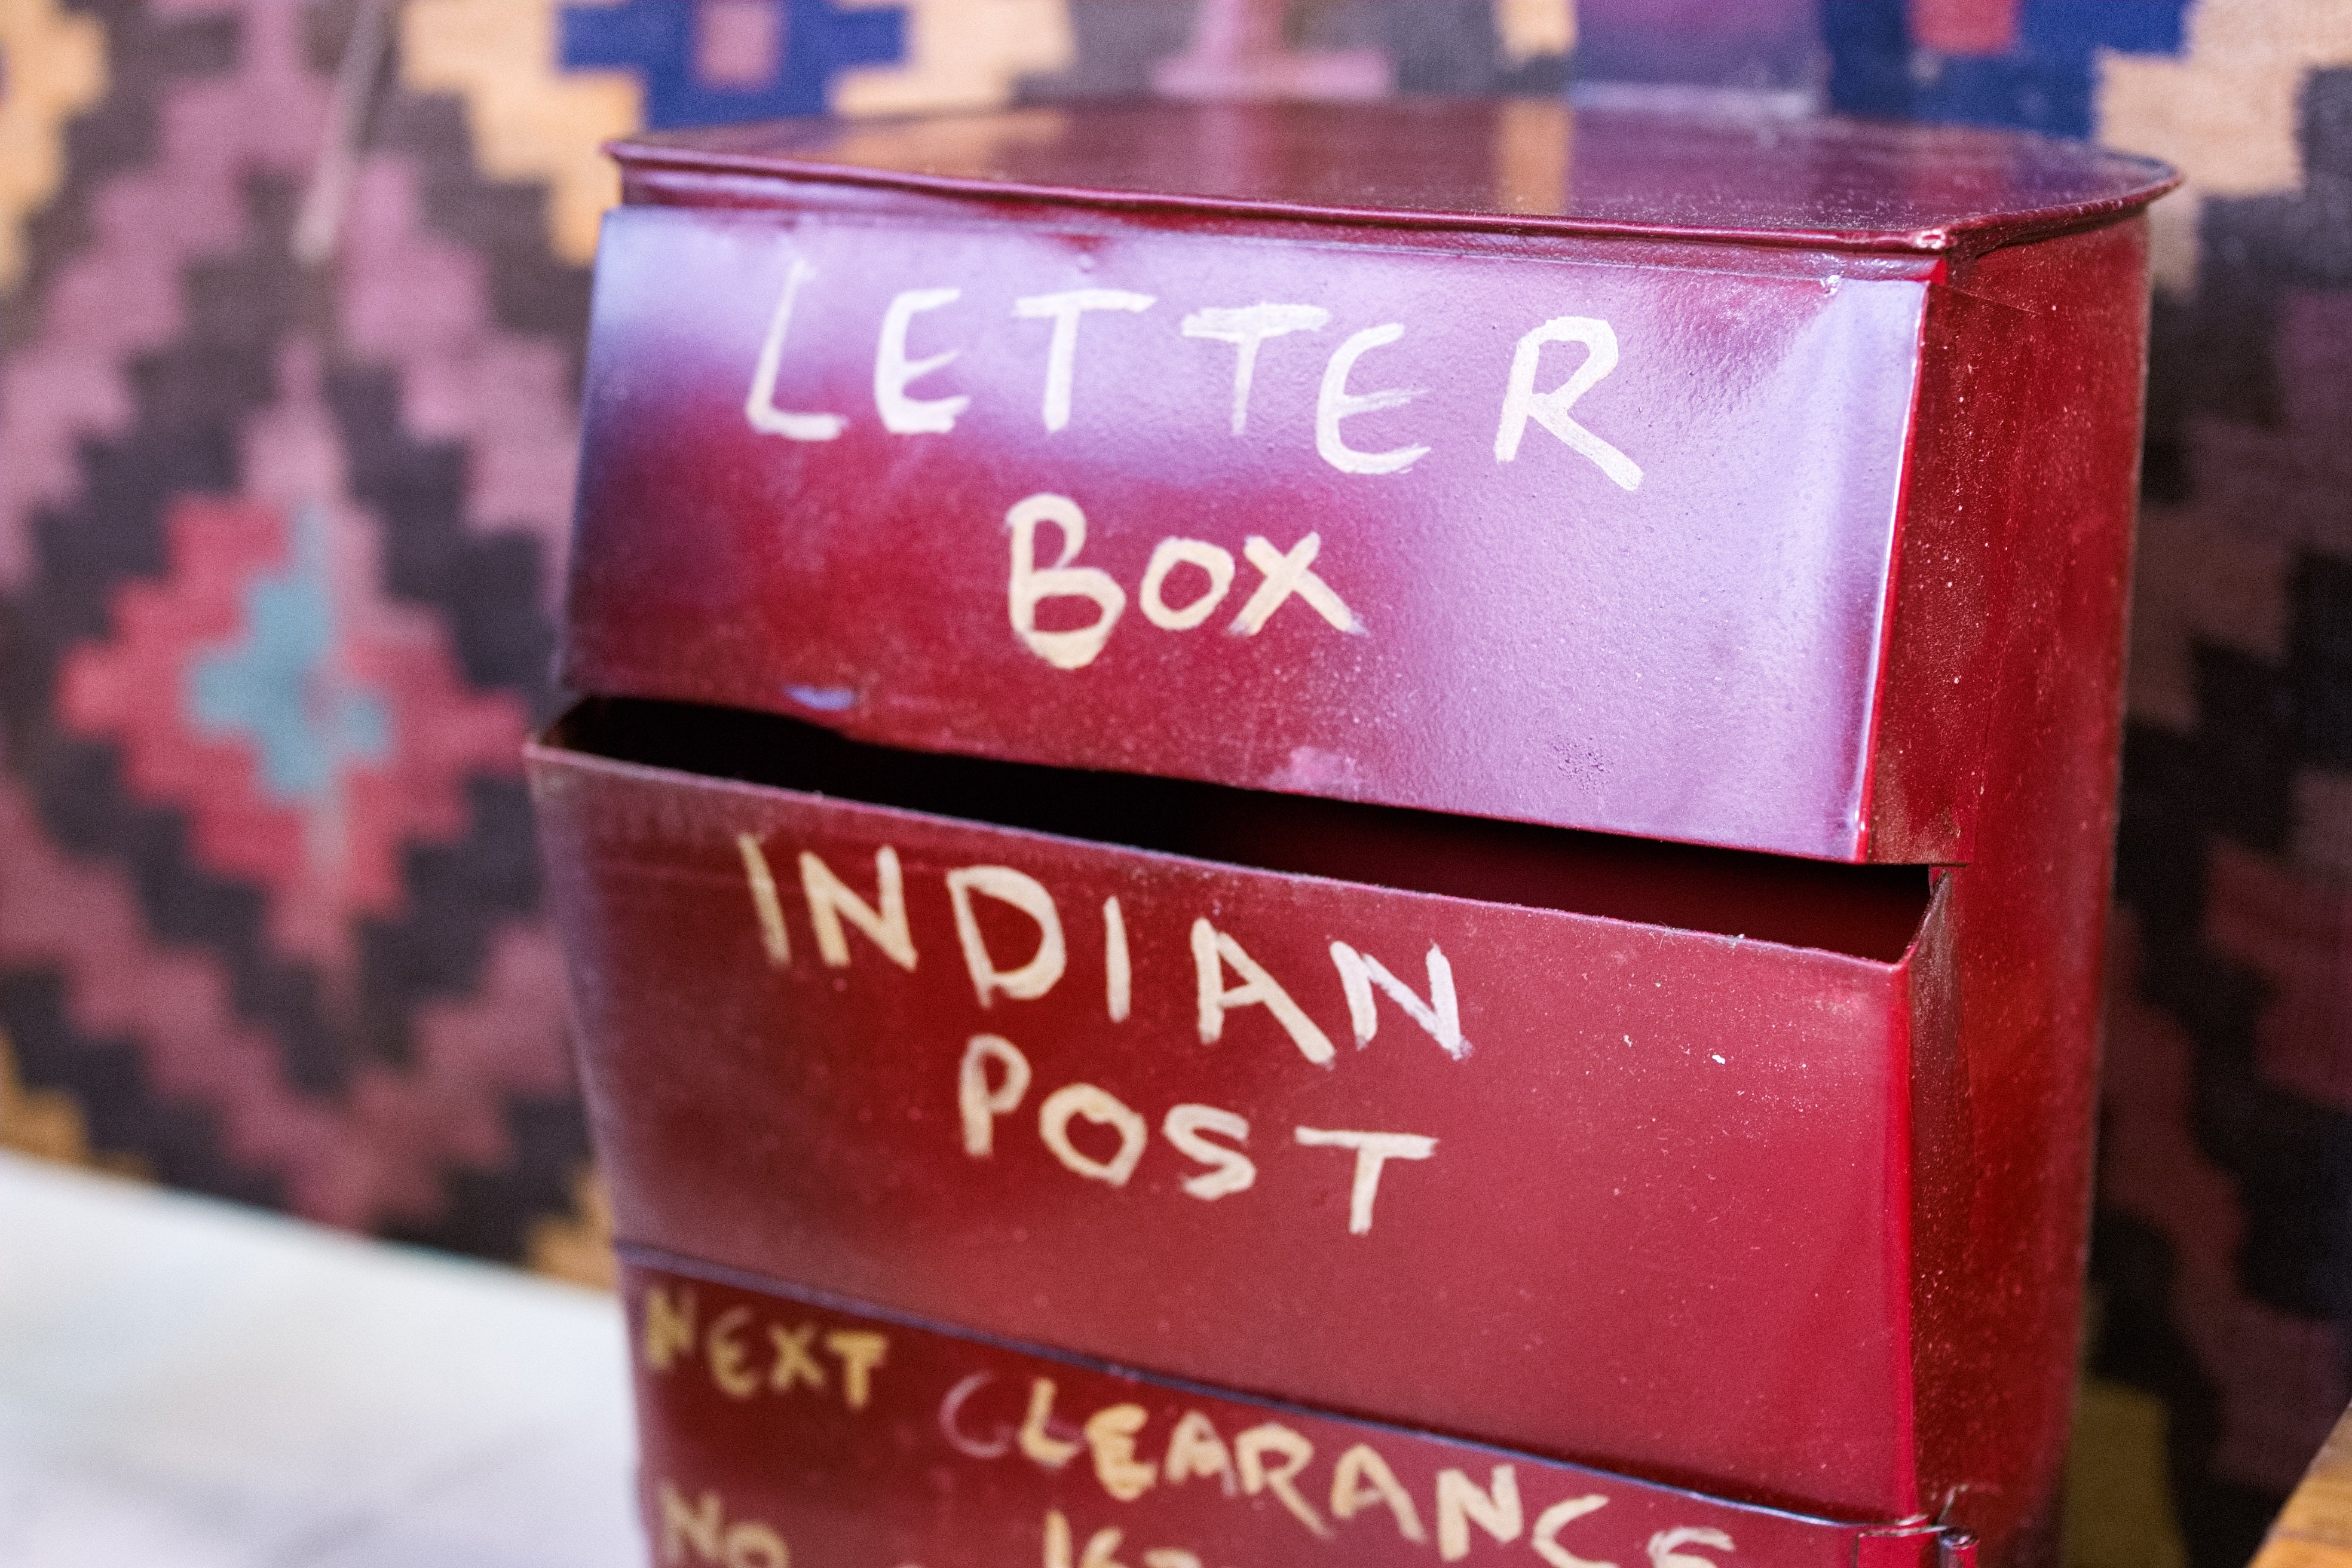 LETTER
BOX
INDIAN
POST
NEXT CLEARANCE
NO